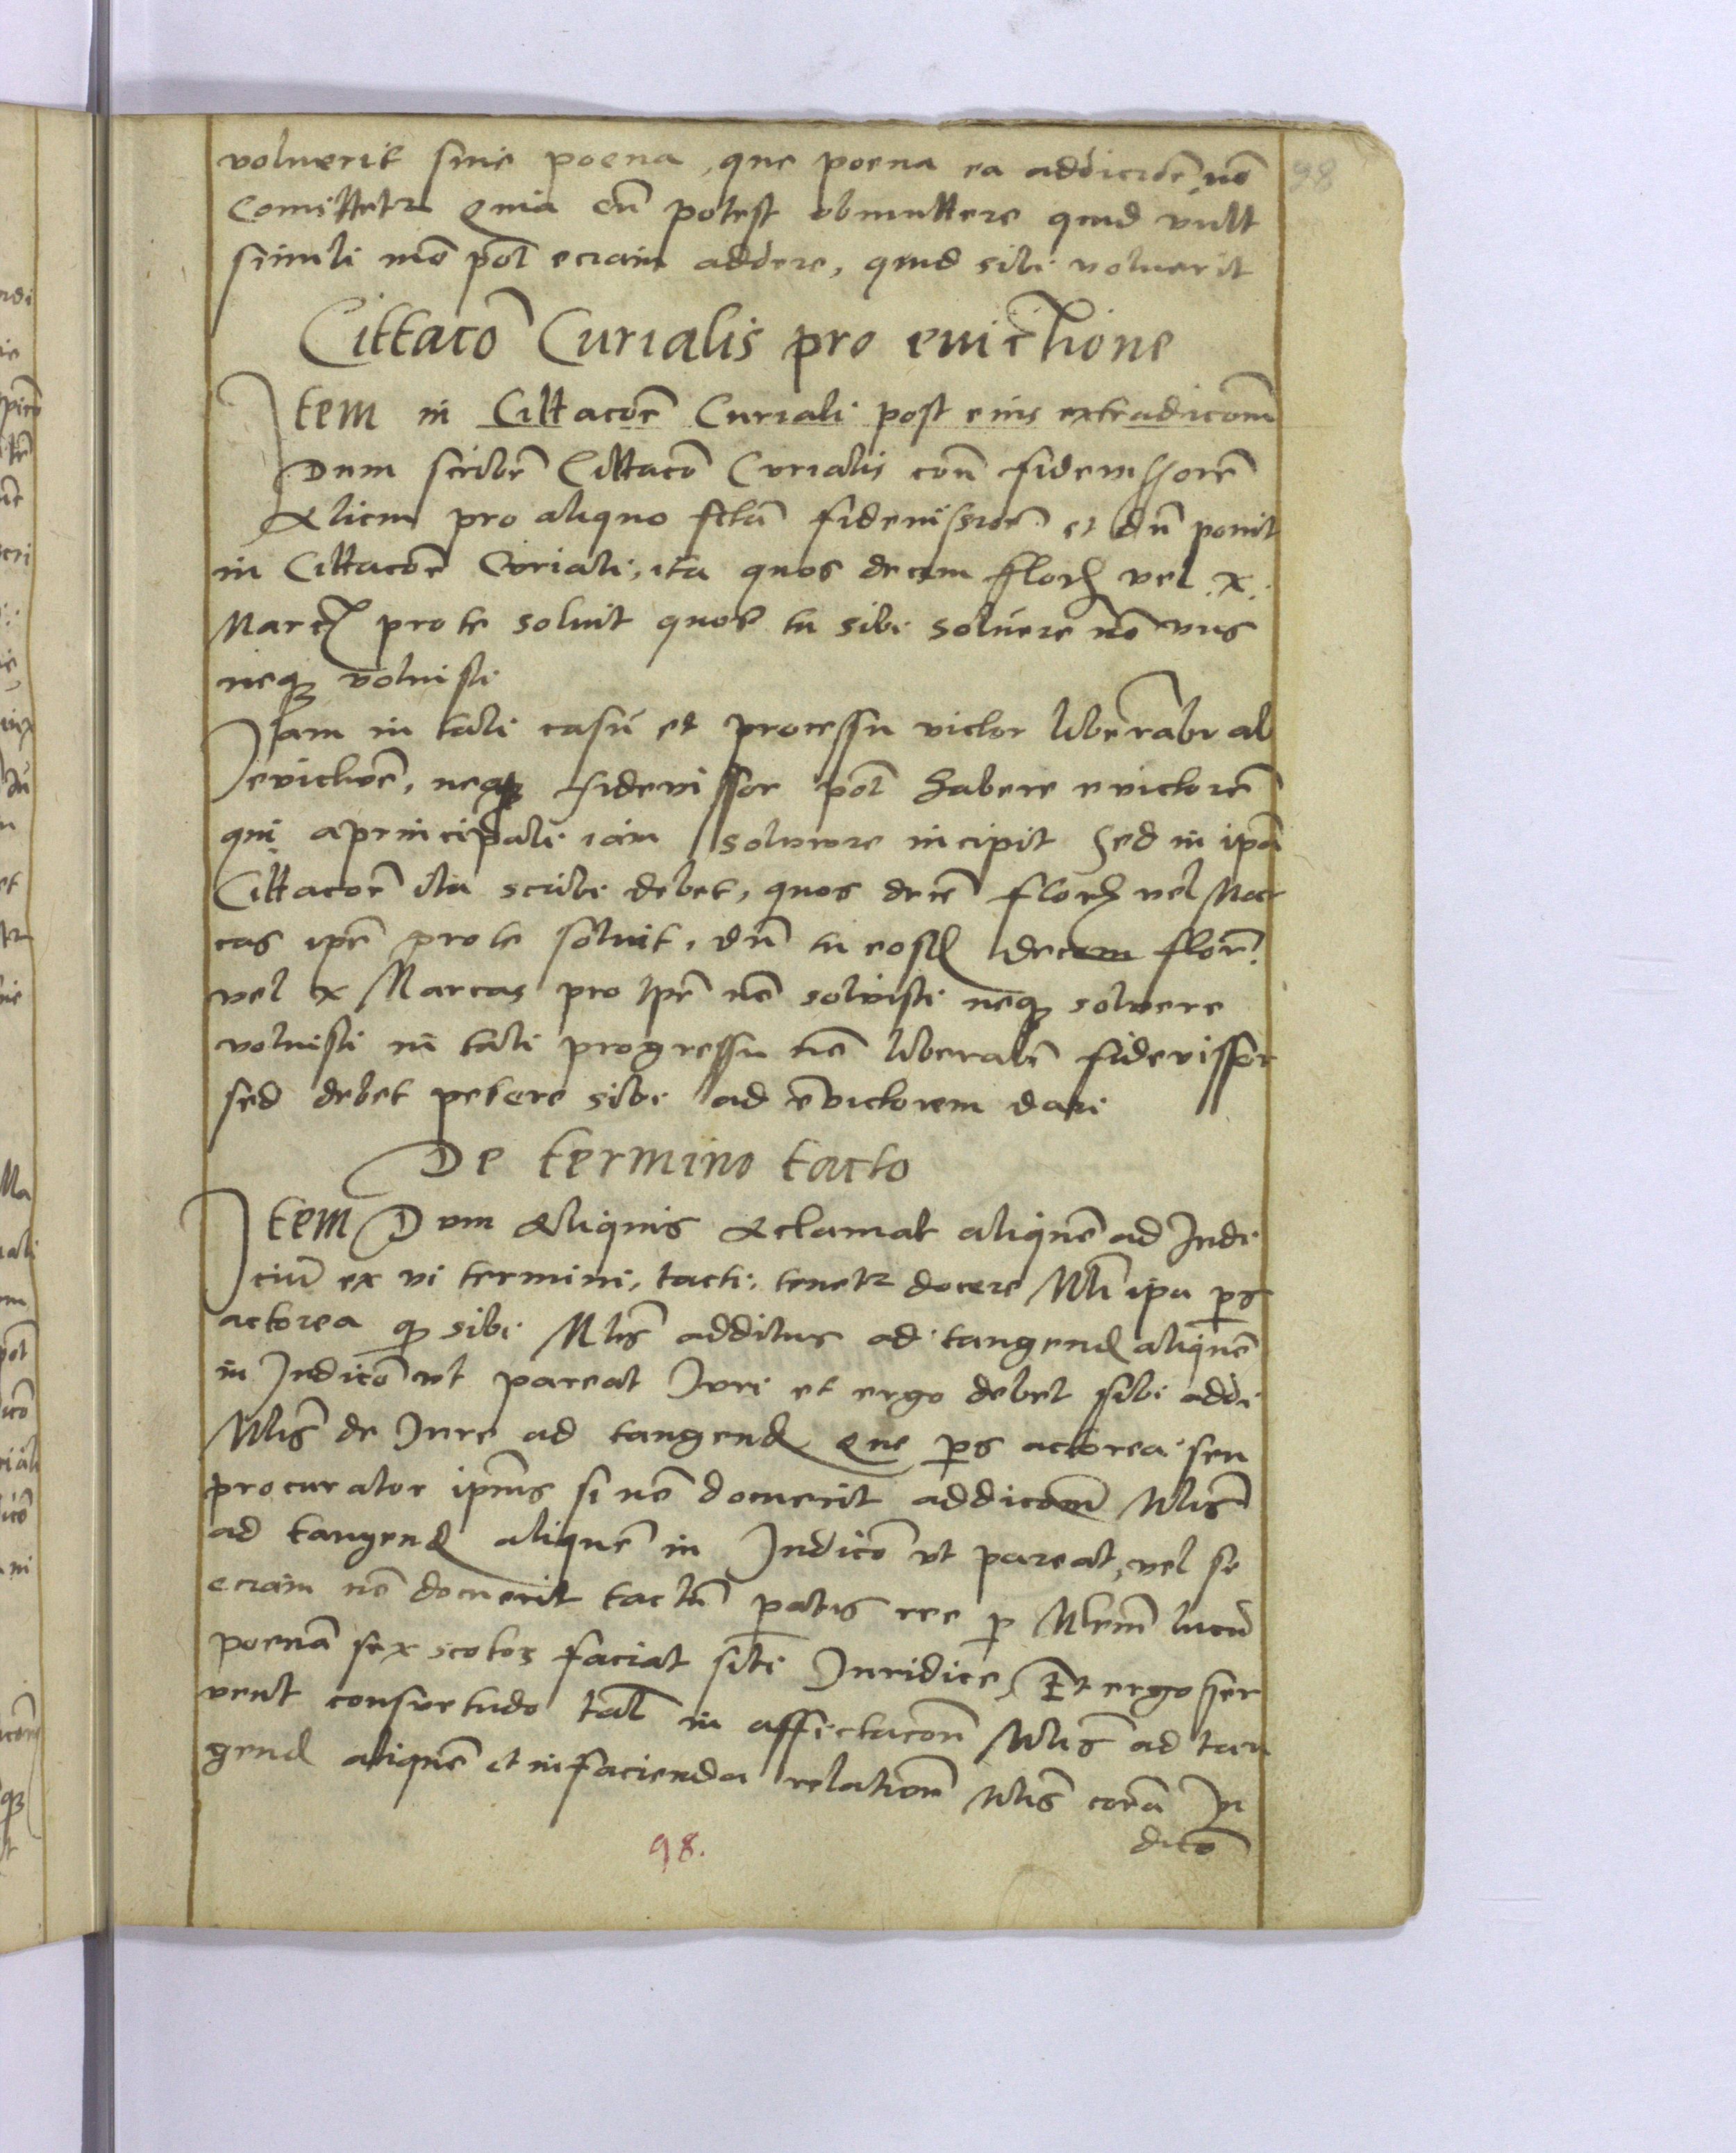 voluerit sine poena, que poena ea addicione, nō 98
Comittetr Quia cū potest obmittere quid vult
simili mō pōt eciam addere, quid sibi voluerit
Cittacō Curialis pro euictione
Item in Cittacōe Curiali post eius extradicōem
Dum scribr̄ Cittacō Curialis cōn fideiussorē
Aliqn pro aliquo fctā fideiussioē et dn̄ ponit
in Cittacōe Curiali, ita quos decem floꝝ vel .x.
Marcꝭ pro te soluit quos tu sibi soluere nō vis
neqꝫ voluisti
Iam in tali casu et processu victor liberabr ab
euictioē, neqꝫ fideiussor pōt habere euictorē
qui a principali iam soluere incipit Sed in ipā
Cittacōe ita scribi debet, quos decē floꝝ vel Mar
cas ipē pro te soluit, dū tu eosd decem florē
vel x Marcas pro ipē nō soluisti neqꝫ soluere
voluisti in tali progressu nō liberabr̄ fideiussor
sed debet petere sibi ad euictorem dari
De termino tacto
Item Dum Aliquis Acclamat aliquē ad Iudi
ciū ex vi termini, tacti, tenetr docere Mli ipa ps
actorea qꝫ sibi Mlis̄ additus ad tangend aliquē
in Iudicō ut pareat Iuri et ergo debet sibi addi
Mlis̄ de Iure ad tangend Que ps actorea seu
procurator ipius si nō docuerit addicōem Mlis̄
ad tangend aliquē in Iudicō ut pareat, vel si
eciam nō docuerit tactū partis ree p Mlem̄ lucri
poenā sex scotos faciat sibi Iuridice, Et ergo ser
uent consuetudo tal in affectacōn Mlis̄ ad tan
gend aliquē et in facienda relationē Mlis̄ corā Iu
dicō
98.